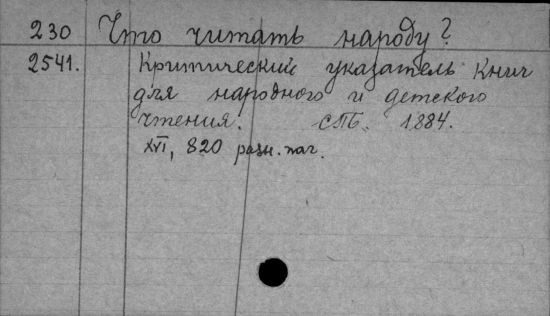 230 Что читать народу?
2541. Критический указатель книг
для народного и детского
чтения. СПБ. 1884.
XVI, 820 разн. паг.